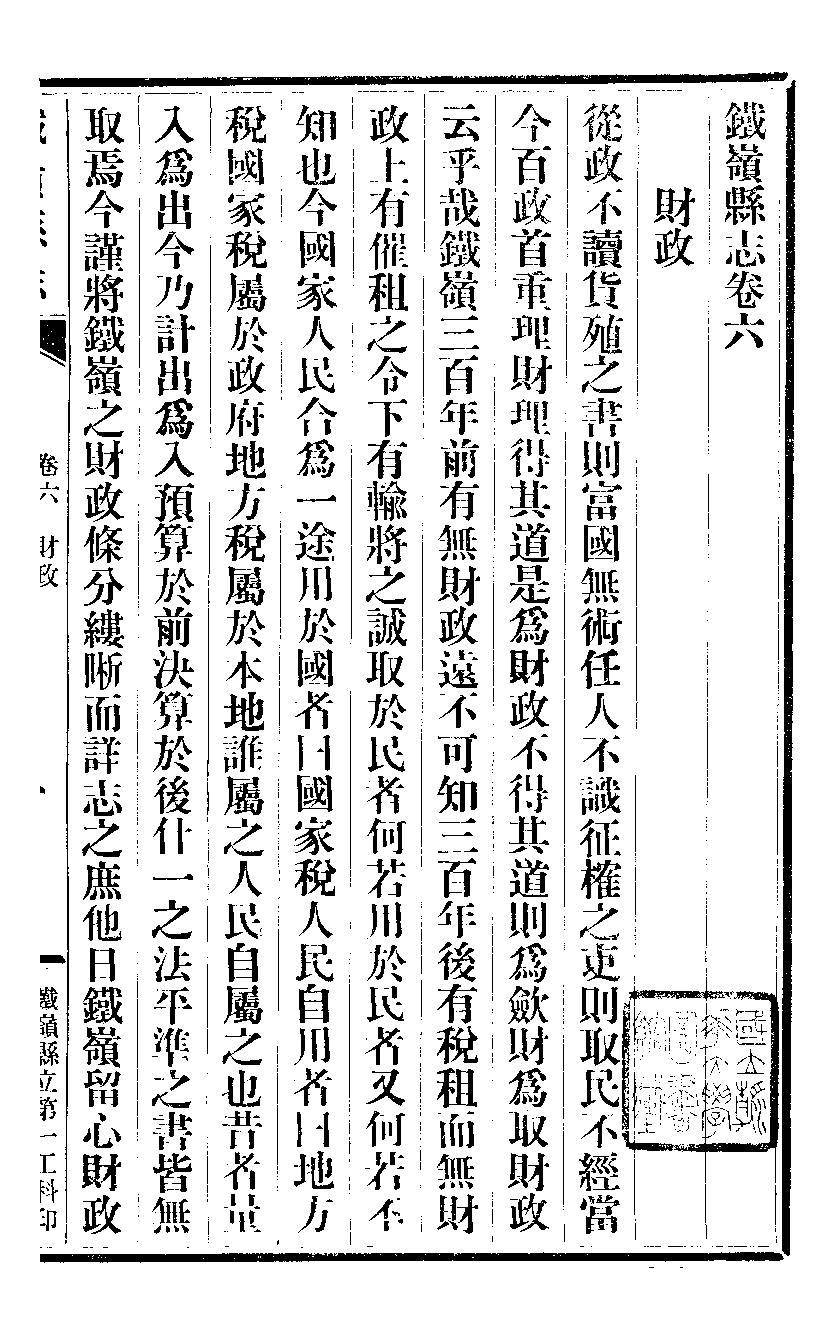 鐵嶺縣志卷六
財政
從政不讀貨殖之書則富國無術任人不識征榷之吏則取民不經當
今百政首重理財理得其道是爲財政不得其道則爲歛財爲取財政
云乎哉鐵嶺三百年前有無財政遠不可知三百年後有稅租而無財
政上有催租之令下有輸將之誠取於民者何若用於民者又何若不
知也今國家人民合爲一途用於國者曰國家稅人民自用者曰地方
稅國家稅屬於政府地方稅屬於本地誰屬之人民自屬之也昔者量
入爲出今乃計出爲入預算於前決算於後什一之法平準之書皆無
取焉今謹將鐵嶺之財政條分縷晣而詳志之庶他日鐵嶺留心財政
鐵嶺縣志
卷六 財政
一
鐵嶺縣立第一工科印